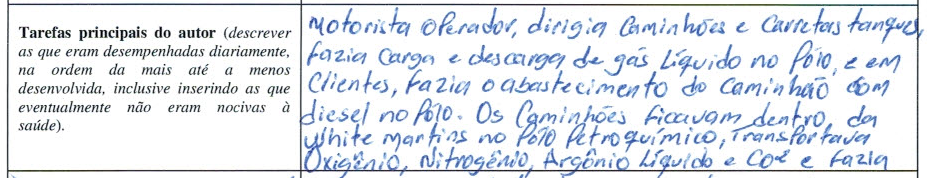 Tarefas principais do autor (descrever
as que eram desempenhadas diariamente,
na ordem da mais até a menos
desenvolvida, inclusive inserindo as que
eventualmente não eram nocivas à
saúde).
Motorista Operador, dirigia Caminhões e Carretas tanques,
fazia Carga e descarga de gás Líquido no Pólo, e em
Clientes, fazia o abastecimento do Caminhão com
diesel no Pólo. Os Caminhões ficavam dentro, da
White martins no Pólo Petroquímico, Transportava
Oxigênio, Nitrogênio, Argônio Líquido e Co2 e fazia